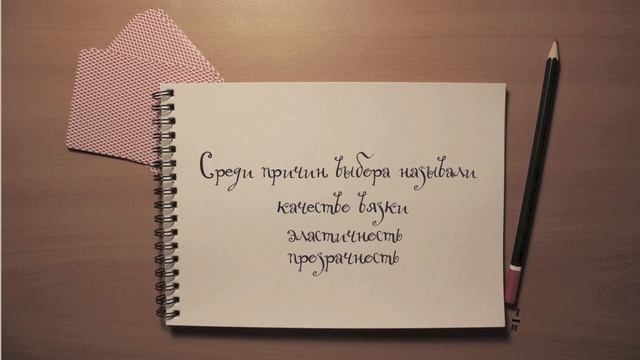 Среди причин выбора называли
качество вязки
эластичность
прозрачность